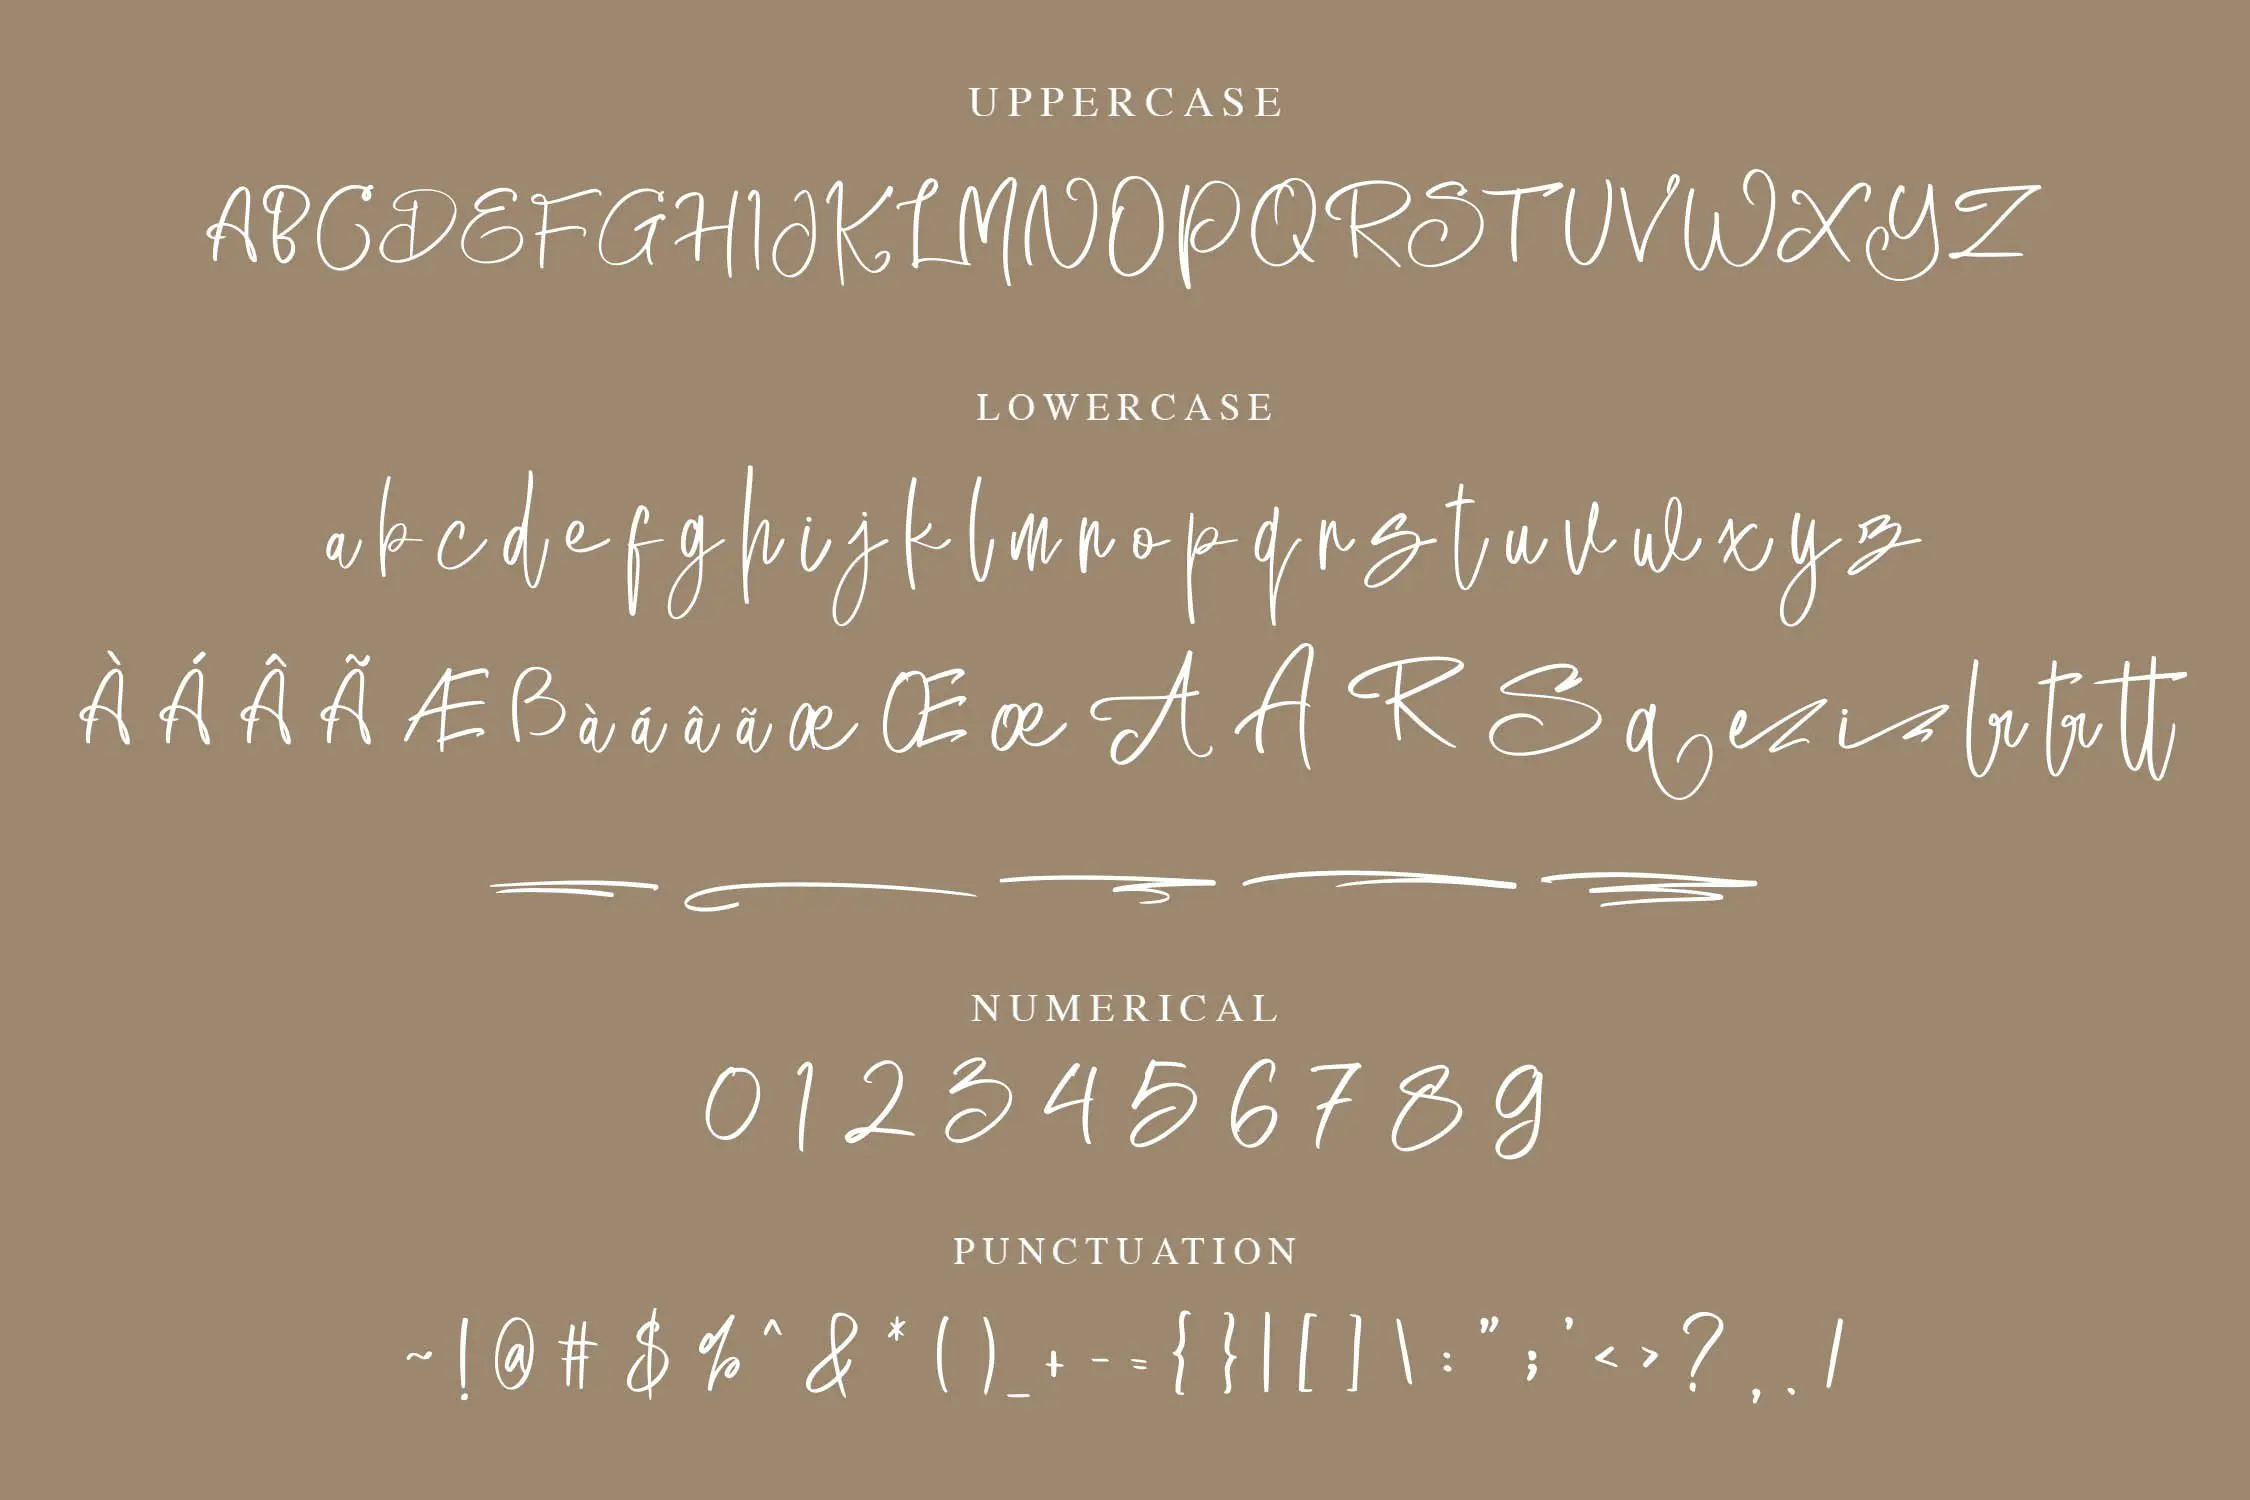 UPPERCASE
ABCDEFGHIJKLMNOPQRSTUVWXYZ
LOWERCASE
a b c d e f g h i j k l m n o p q r s t u v w x y z
À Á Â Ã Æ ß à á â ã æ Œ œ A A R S a e z i lr tr tt
NUMERICAL
0 1 2 3 4 5 6 7 8 9
PUNCTUATION
~ ! @ # $ % ^ & * ( ) _ + - = { } | [ ] \ : " ; ' < > ? , . /